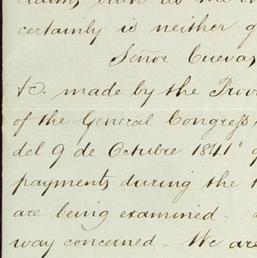 certainly is neither
Señor Cuevas
&c. made by the
of the General Congress,
del 9 de Octubre 1841"
payments during the
are being examined.
way concerned - We are